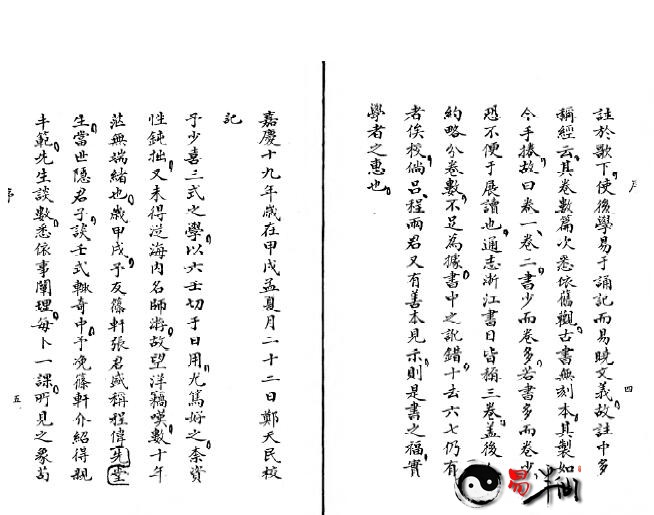 註於歌下使後學易于誦記而易曉文義故註中多
稱經云其卷數篇次悉依舊觀古書無刻本其製如
今手捲故曰卷一卷二書少而卷多若書多而卷少
恐不便于展讀也通志浙江書目皆稱三卷蓋後人
約略分卷數不足為據書中之訛錯十去六七仍有
者俟校倘呂程兩君又有善本見示則是書之福實
學者之惠也
四
嘉慶十九年歲在甲戌孟夏月二十二日鄭天民校
記
予少喜三式之學以六壬切于日用尤篤好之柰資
性鈍拙又未得從海内名師游故望洋窃嘆數十年
茫無端緒也歲甲戌予友篠軒張君盛稱程偉堂先
生當世隱君子談壬式輒奇中予浼篠軒介紹得親
丰範先生談數悉依事闡理每卜一課所見之象苟
序
五
易半仙